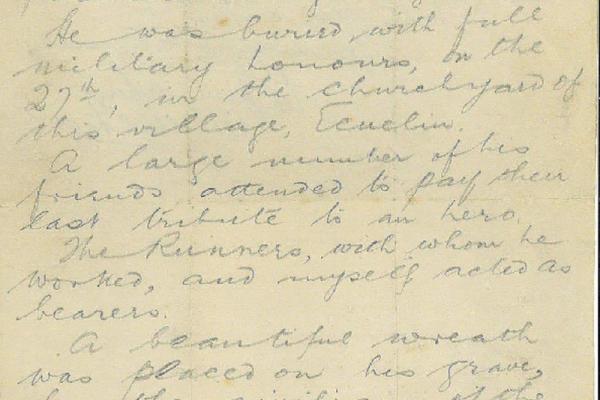 He was buried, with full
military honours, on the
27th, in the churchyard of
this village, Ecuelin.
A large number of his
friends attended to pay their
last tribute to an hero.
The Runners, with whom he
worked, and myself acted as
bearers.
A beautiful wreath
was placed on his grave,
by the civilians of the